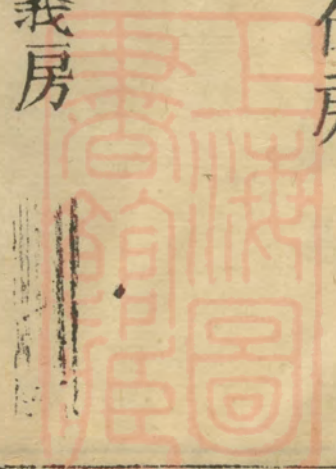 房
義房
上海圖
書館藏